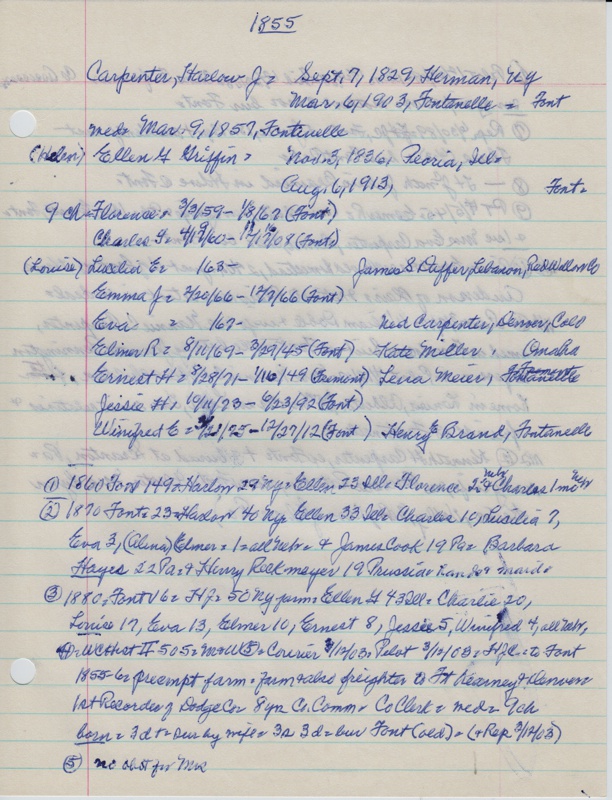 1855
Carpenter, Harlow J = Sept. 7, 1829, Herman, NY
Mar. 6, 1903, Fontenelle = Font
med = Mar. 9, 1857, Fontenelle
(Helen) Ellen G Griffin = Nov. 3, 1836, Peoria, Ill =
Aug. 6, 1913, Font =
9 ch = Florence = 3/3/59 - 1/8/62 (Font)
Charles G = (Font)
(Louise) Lucilia E = 163 - James S Daffer, Lebanon, Red Willow Co
Emma J = 2/20/66 - 12/7/66 (Font)
Eva = 167 - Ned Carpenter, Denver, Colo
Elmer R = 8/11/69 - 3/29/45 (Font) Kate Miller, Omaha
Ernest H = 8/28/71 - 1/16/49 (Fremont) Lena Meier, Fontanelle
Jessie H = 10/11/73 - 6/23/92 (Font)
Winifred E = - 12/27/12 (Font) Henry E Brand, Fontenelle
① 1860 Font 149 = Harlow 29 NY = Ellen 23 Ill = Florence Nebr Charles 1 mo Nebr
② 1870 Font = 23 = Harlow 40 NY = Ellen 33 Ill = Charles 10, Lusilia 7,
Eva 3, (Alma) Elmer = 1 = all Nebr = + James Cook 19 Pa = Barbara
Hayes 22 Pa = + Henry Rockmeyer 19 Prussia = hands + maid =
③ 1880 = Font 16 = HJ = 50 NY farm = Ellen G 43 Ill = Charlie 20,
Louise 17, Eva 13, Elmer 10, Ernest 8, Jessie 5, Winifred 4, all Nebr,
Hist II 505 = = Courier 3/12/03 = Pilot 3/12/03 = HJC = to Font
1855-6 = preempt farm = farm + also freighter to Ft Kearney + Denver
1st Recorder of Dodge Co = 8 yrs Co. Comm = Co Clerk = med = 9 ch
born = 3 d + = sur by wife = 3 s 3 d = bur Font (old) = (+ Rep 3/12/03)
⑤ no obit for Mrs